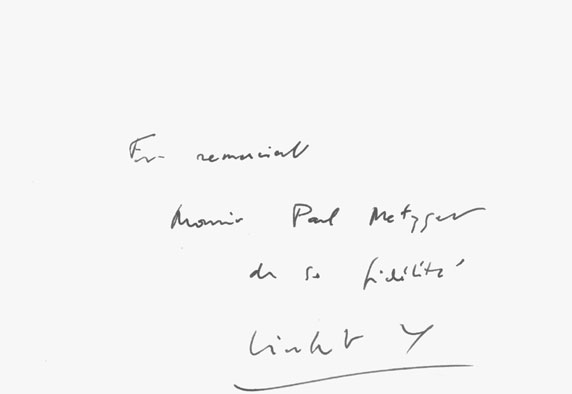 En remerciant
Monsieur Paul Metzger
de sa fidélité